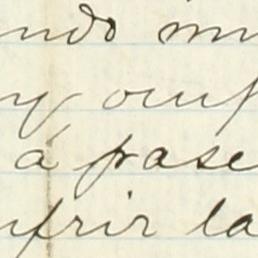 ndo mi
y ocup
á pase
ufrir la